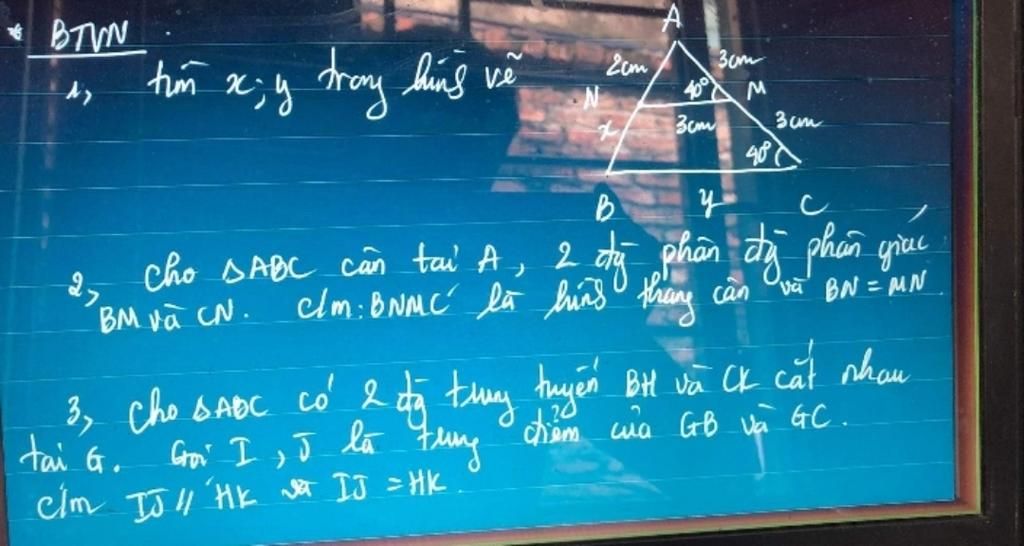 * BTVN
1, tìm x; y trong hình vẽ
A
2cm 3cm
N 40° M
x 3cm 3cm
40°
B y C
2, Cho △ABC cân tại A, 2 đg phân đg phân giác
BM và CN. C/m: BNMC là hình thang cân và BN = MN
3, Cho △ABC có 2 đg trung tuyến BH và CK cắt nhau
tại G. Gọi I, J là trung điểm của GB và GC.
c/m IJ // HK và IJ = HK.